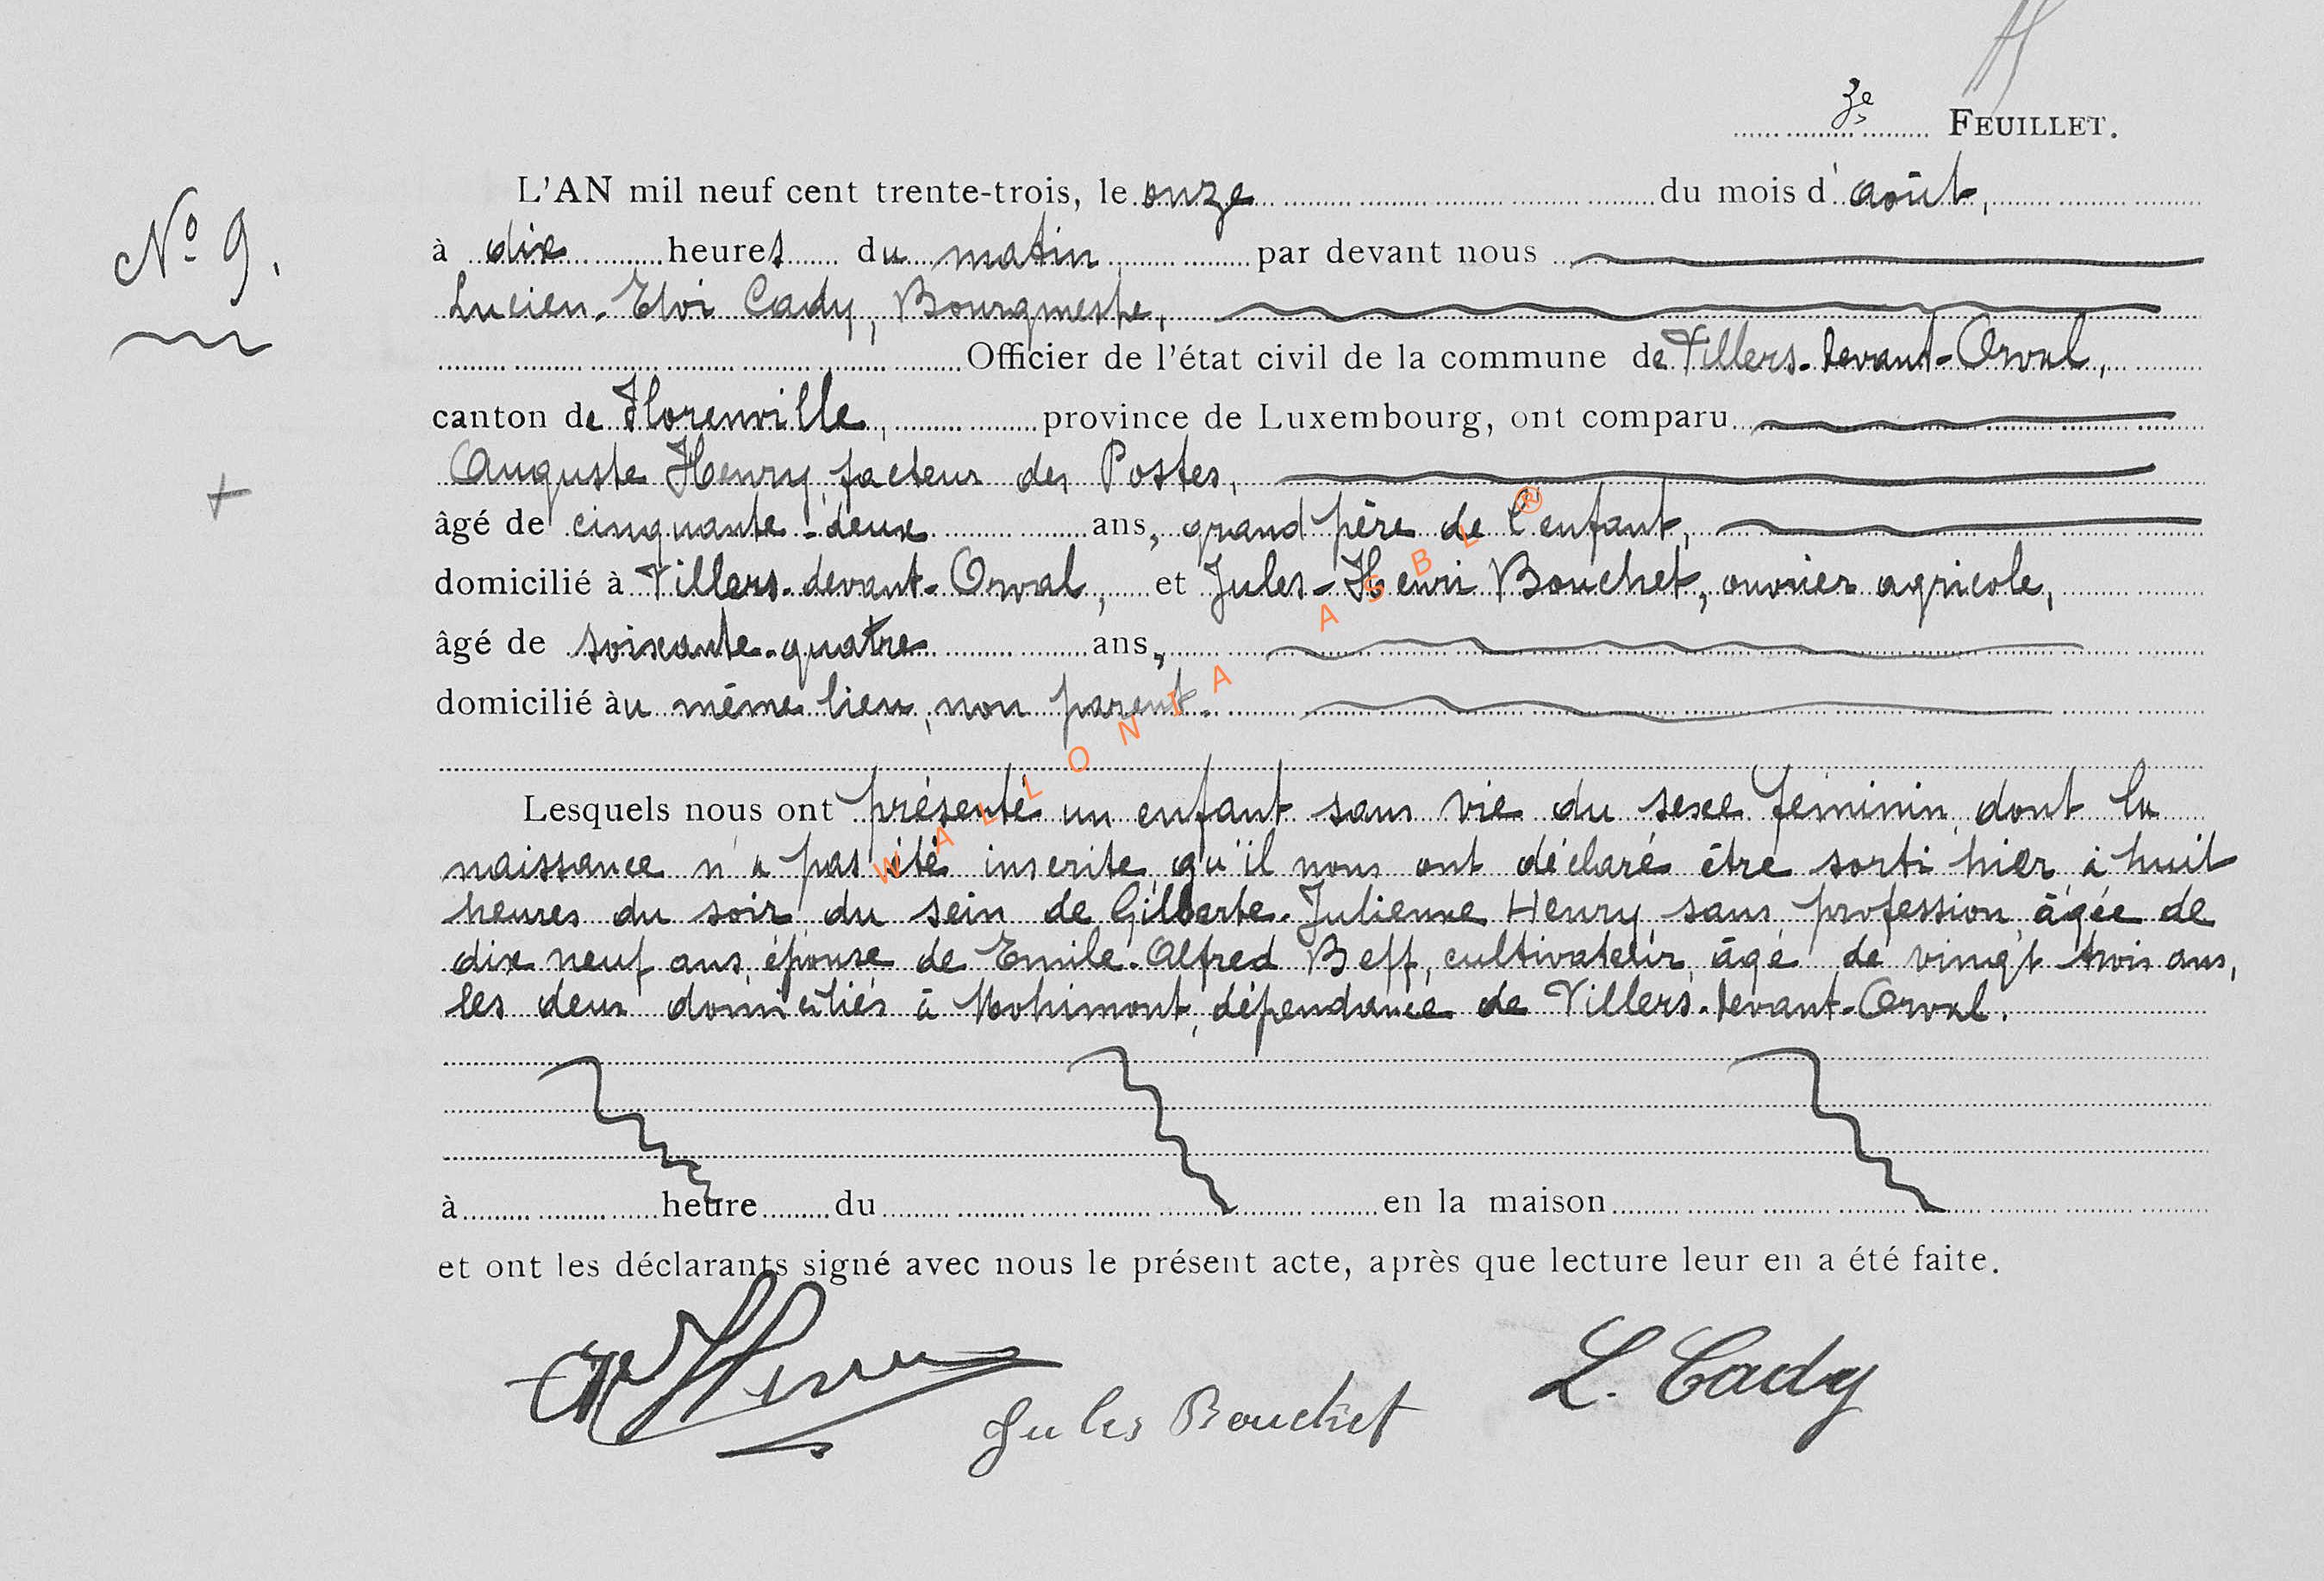 3e FEUILLET.
L'AN mil neuf cent trente-trois, le onze du mois d'août,
N° 9.
à dix heures du matin par devant nous
Lucien-Eloi Cady, Bourgmestre,
Officier de l'état civil de la commune de Villers-devant-Orval,
canton de Florenville, province de Luxembourg, ont comparu
Auguste Henry, facteur des Postes,
âgé de cinquante-deux ans, grand père de l'enfant,
domicilié à Villers-devant-Orval, et Jules-Henri Bouchet, ouvrier agricole,
âgé de soixante-quatre ans,
domicilié àu même lieu, non parent.
WALLONIA ASBL ®
Lesquels nous ont présenté un enfant sans vie du sexe féminin, dont la
naissance n'a pas été inscrite, qu'il nous ont déclaré être sorti hier à huit
heures du soir du sein de Gilberte-Julienne Henry, sans profession, âgée de
dix neuf ans, épouse de Emile-Alfred Beff, cultivateur, âgé de vingt trois ans,
les deux domiciliés à Mohimont, dépendance de Villers-devant-Orval.
à heure du en la maison
et ont les déclarants signé avec nous le présent acte, après que lecture leur en a été faite.
Jules Bouchet
L. Cady